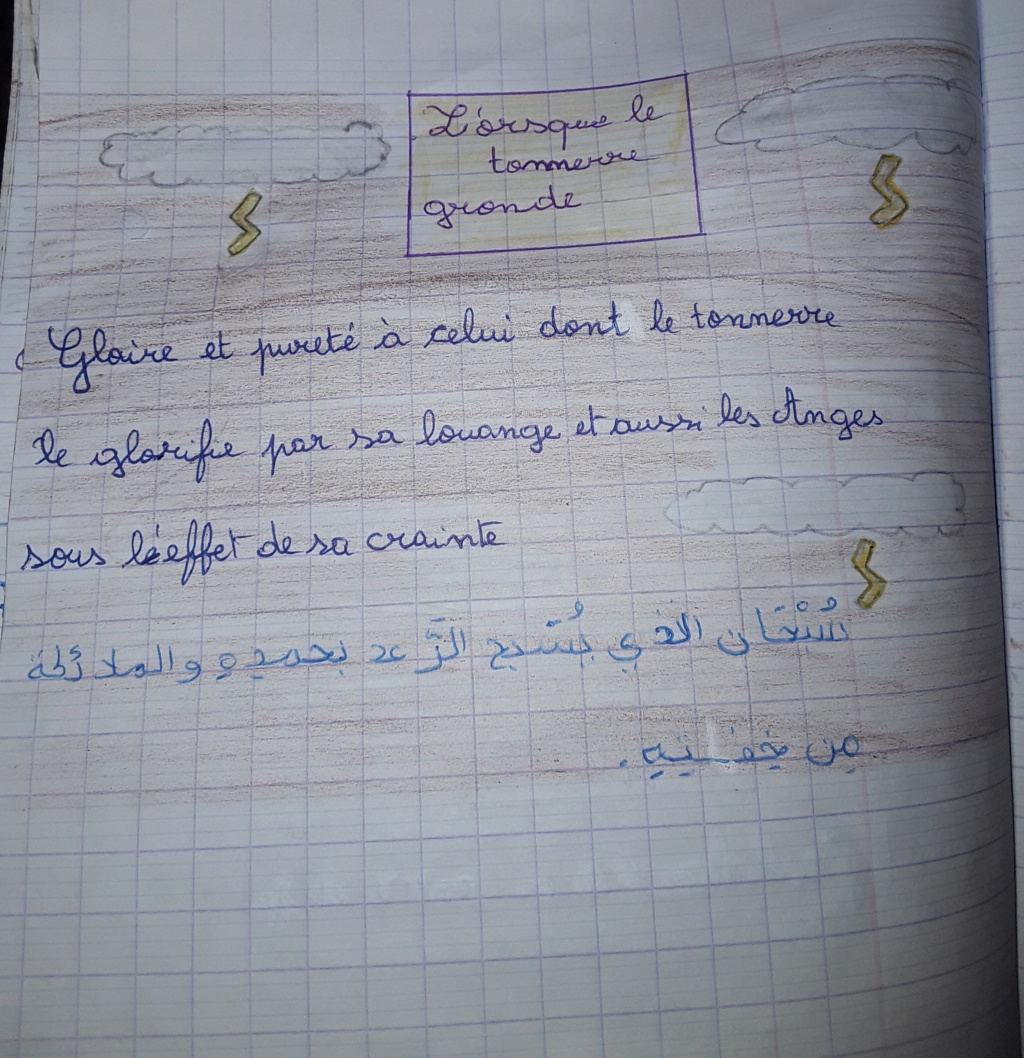 L'orsque le
tonnerre
gronde
Gloire et pureté à celui dont le tonnerre
le glorifie par sa louange et aussi les Anges
sous l'éeffet de sa crainte
سُبْحَان الذي يُسَبح الرَّعد بحمدِهِ والملائكة
مِن خِيفَتِهِ.